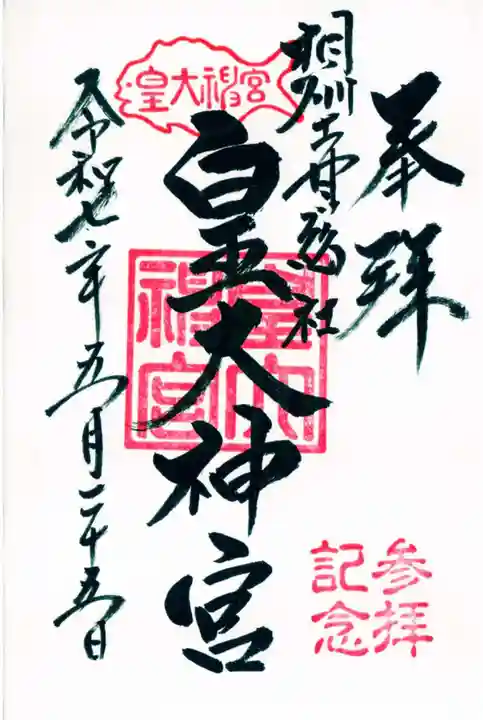 奉拝
相州土甘郷総社
皇大神宮
皇大神宮
皇大神宮
令和七年五月二十五日
参拝
記念